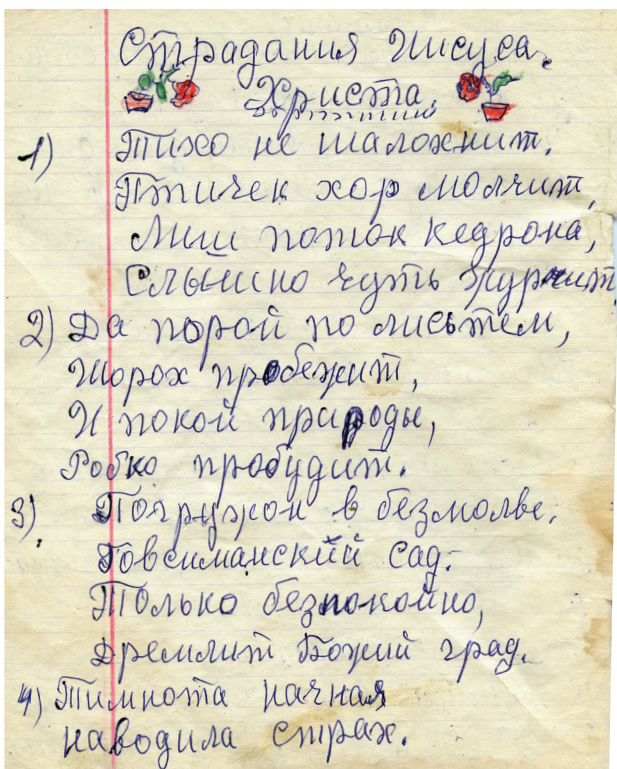 Страдания Иисуса
Христа.
1) Тихо не шалохнит.
Птичек хор молчит,
Лиш поток кедрона,
Слышно чуть журчит
2) Да порой по лисьтем,
Шорох пробежит,
И покой природы,
Робко пробудит.
3) Погружон в безмолве.
Говсиманский сад.
Только безпокойно,
Дремлит Божий град.
4) Тимнота начная
наводила страх.